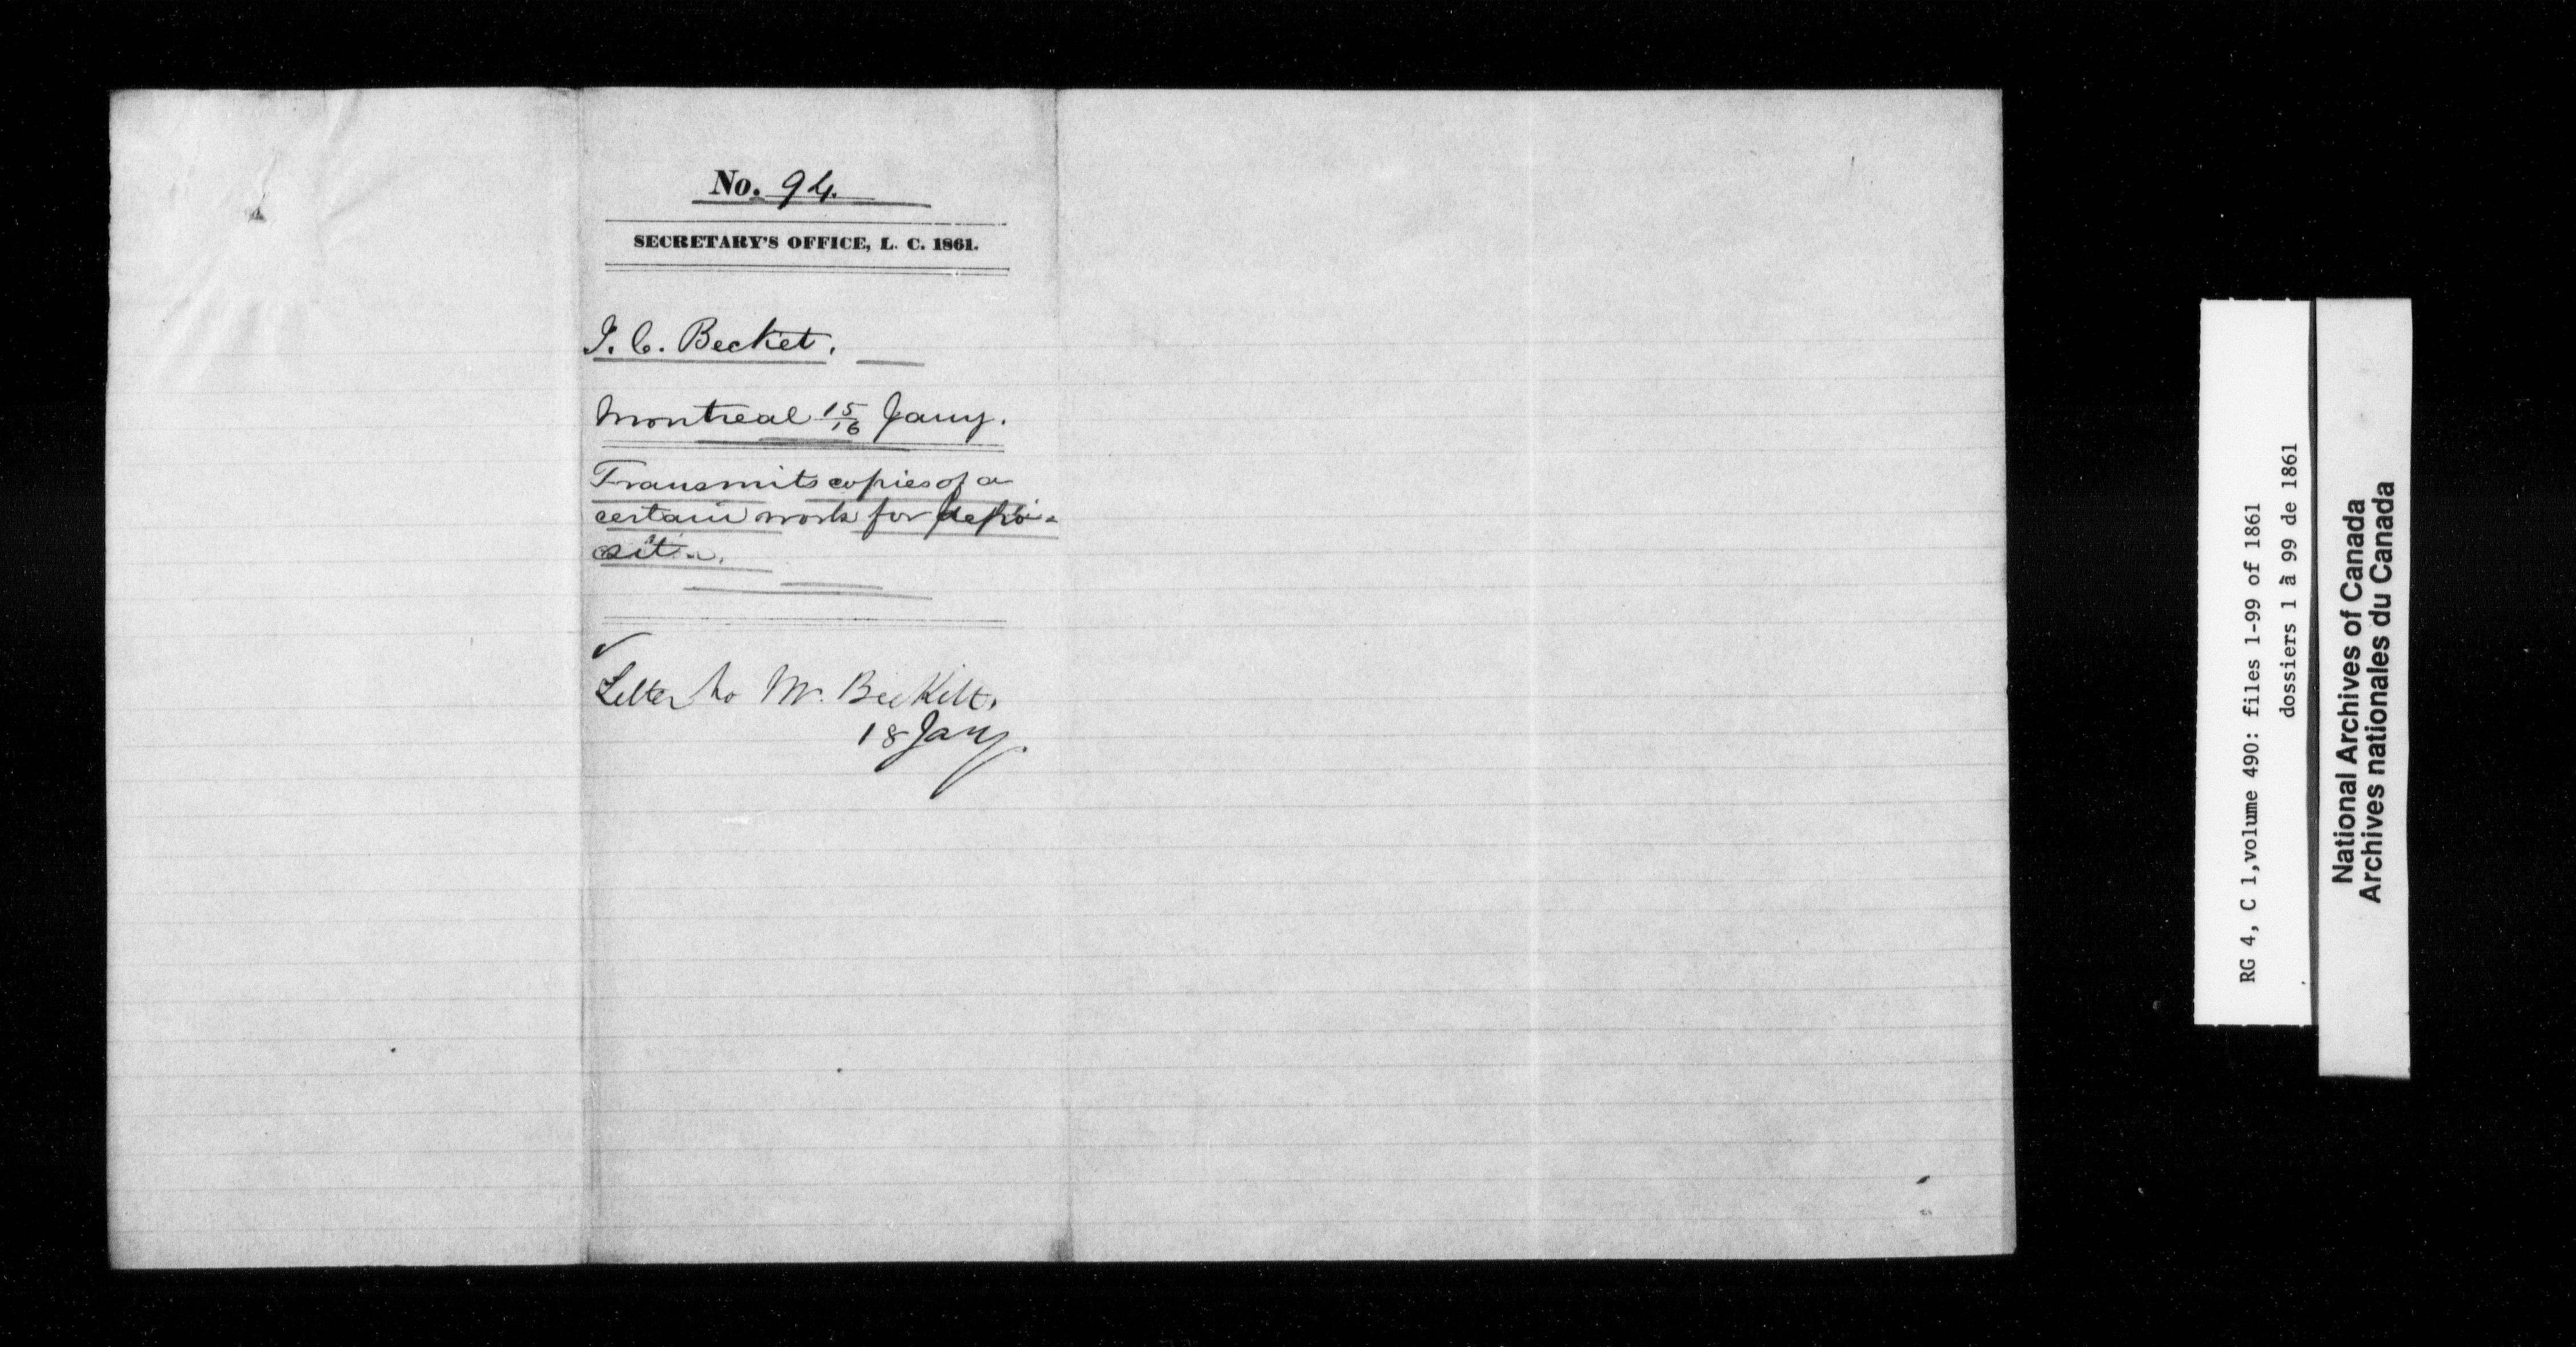 No. 94.
SECRETARY'S OFFICE, L. C. 1861.
J. C. Becket.
Montreal 15/16 Jany.
Transmits copies of a
certain work for depo-
sit.
Letter to Mr. Beckett,
18 Jany.
RG 4, C 1,volume 490: files 1-99 of 1861
dossiers 1 à 99 de 1861
National Archives of Canada
Archives nationales du Canada